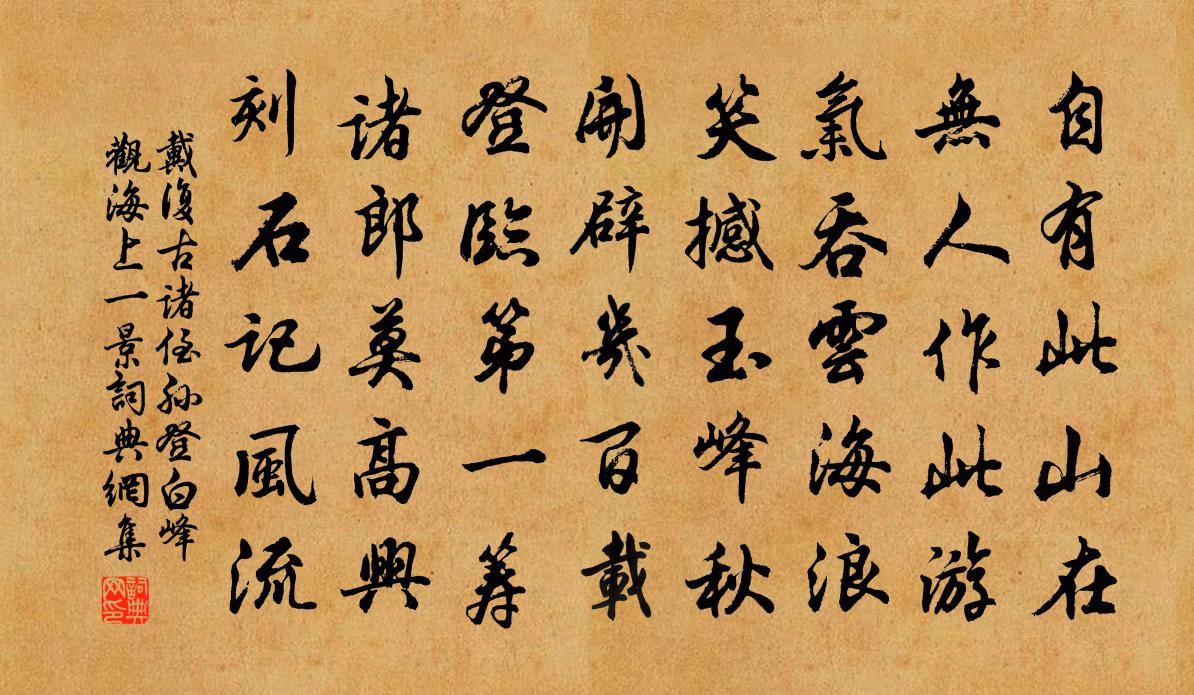 自有此山在
無人作此游
氣吞雲海浪
笑撼玉峰秋
開辟幾百載
登臨第一籌
諸郎莫高興
刻石記風流
戴復古諸侄孫登白峰
觀海上一景詞典網集
詞典網印